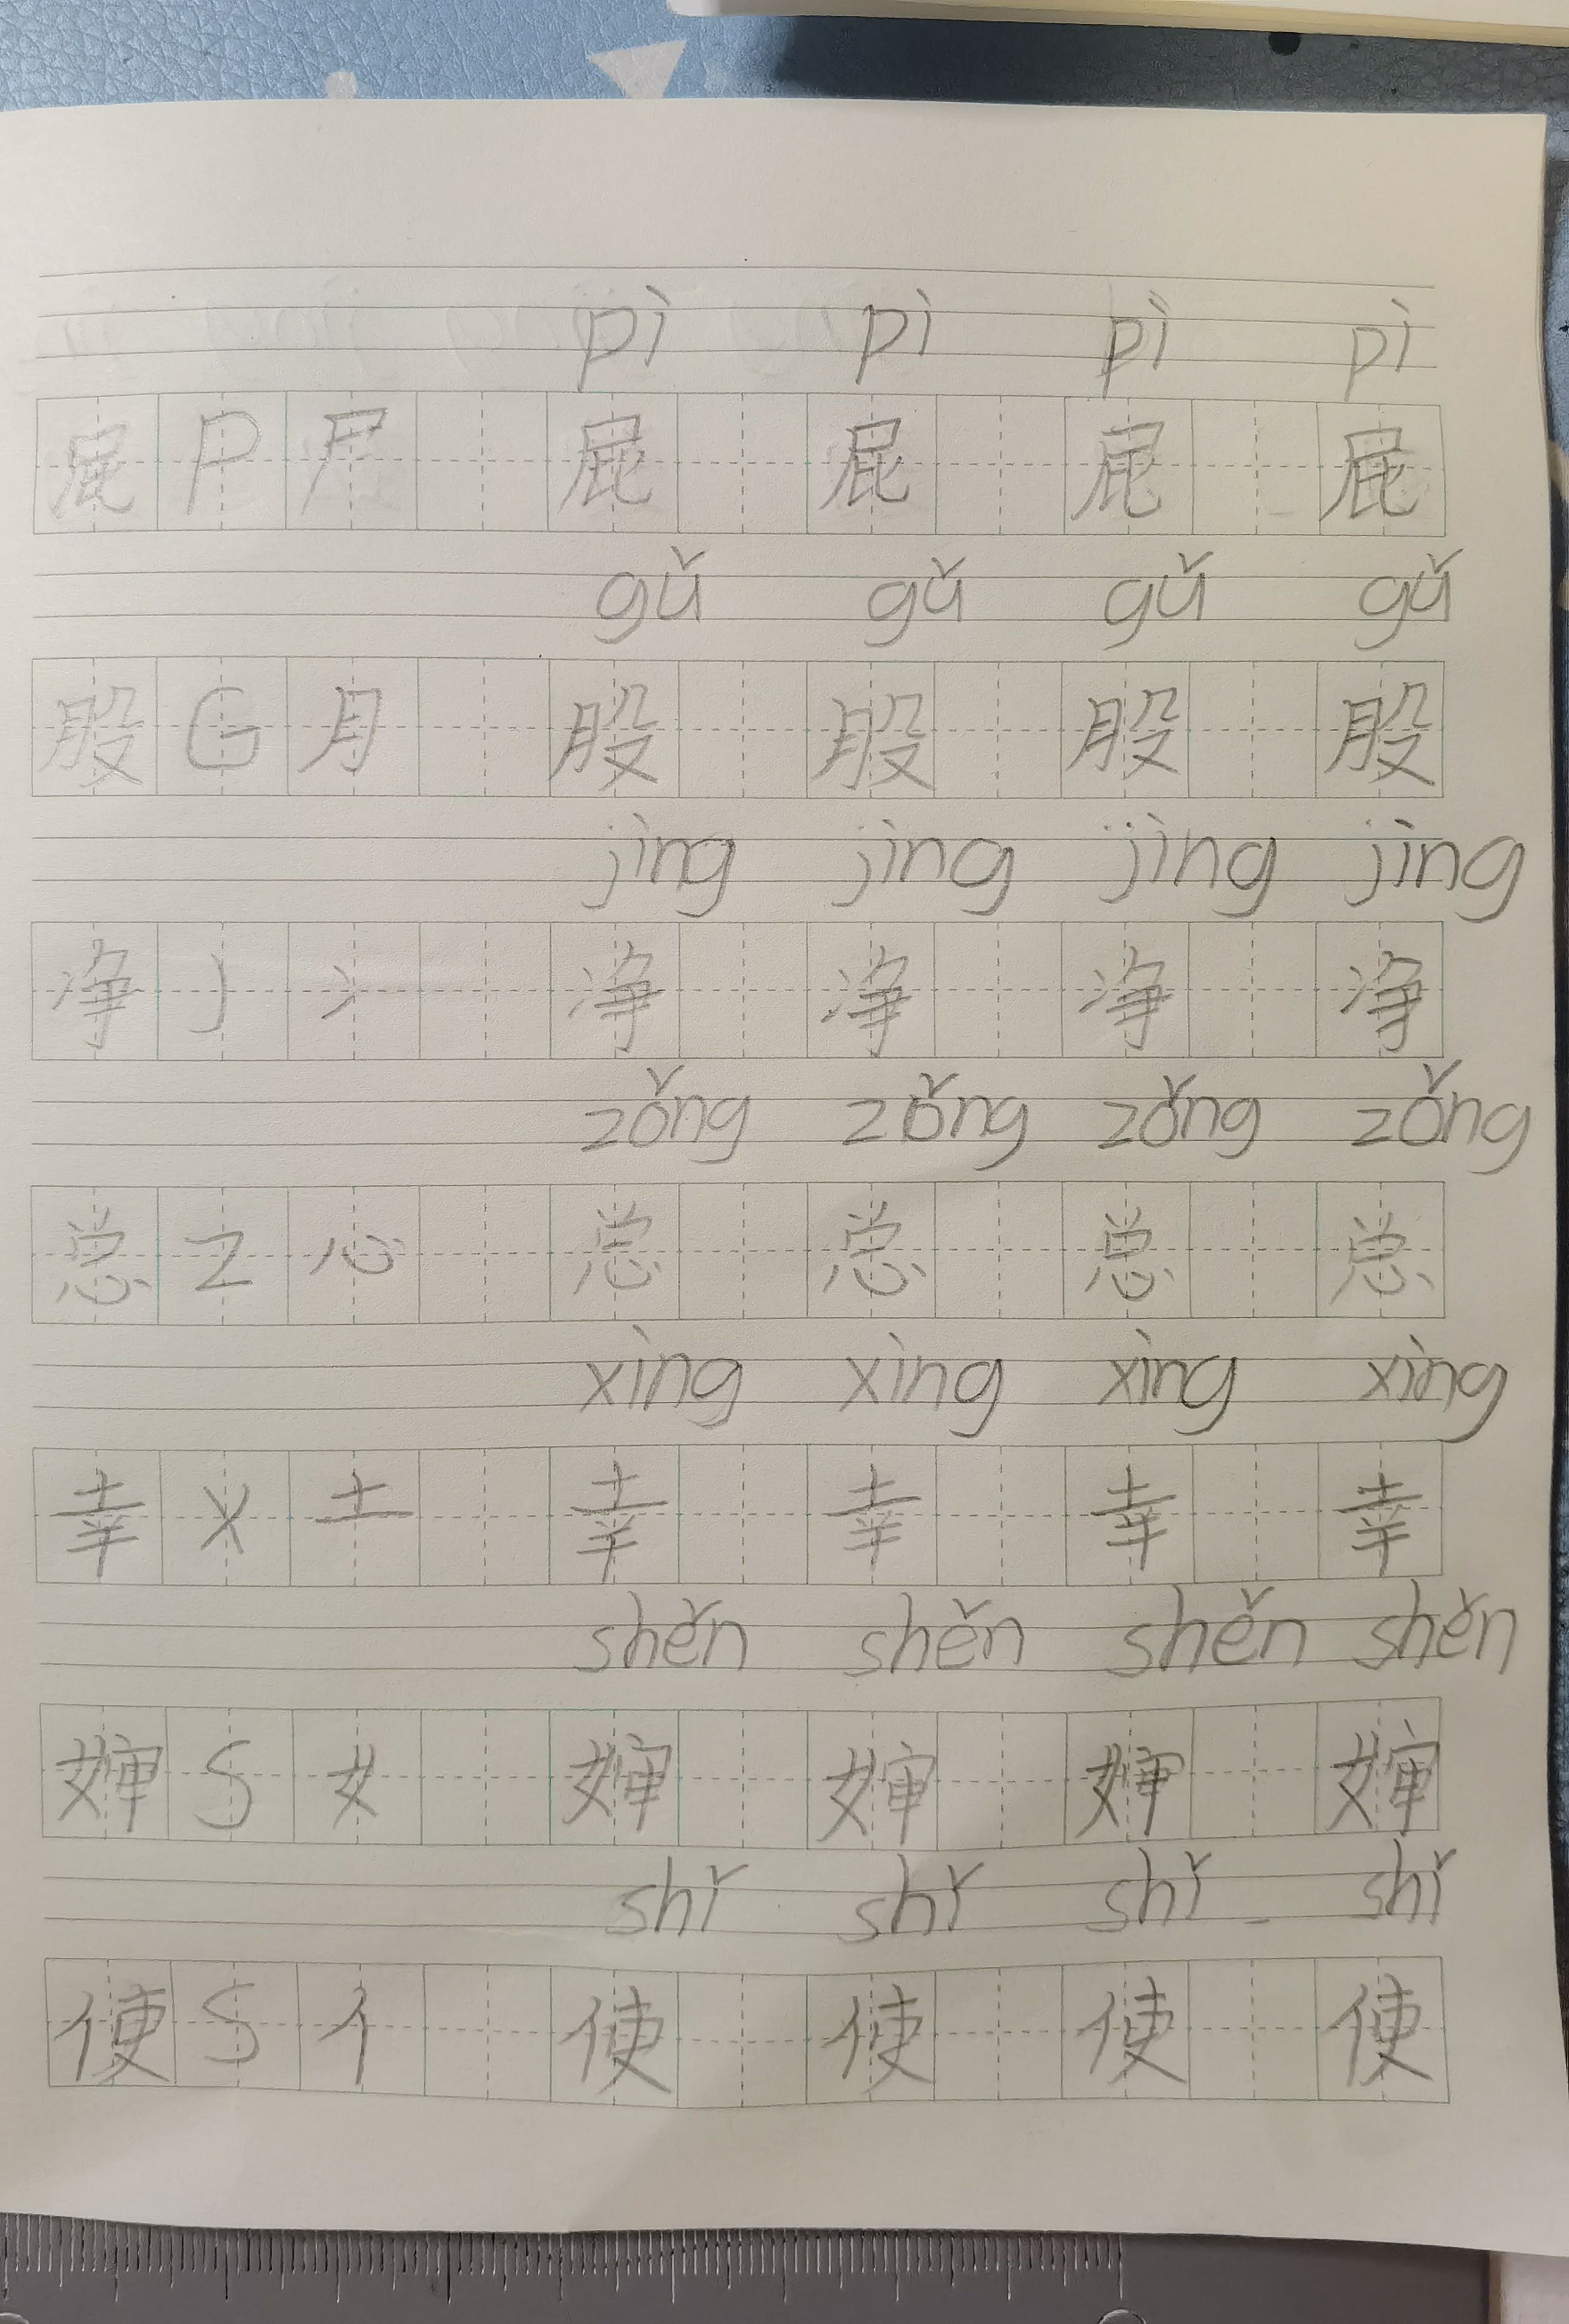 pì pì pì pì
屁 P 尸 屁 屁 屁 屁
gǔ gǔ gǔ gǔ
股 G 月 股 股 股 股
jìng jìng jìng jìng
净 J 冫 净 净 净 净
zǒng zǒng zǒng zǒng
总 Z 心 总 总 总 总
xìng xìng xìng xìng
幸 X 土 幸 幸 幸 幸
shěn shěn shěn shěn
婶 S 女 婶 婶 婶 婶
shǐ shǐ shǐ shǐ
使 S 亻 使 使 使 使